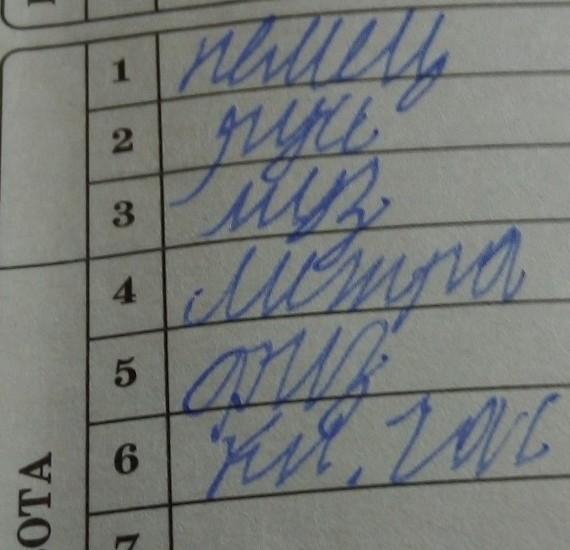 1 немец
2 рус
3 муз
4 метра
5 физ
6 кл. час
7
ОТА